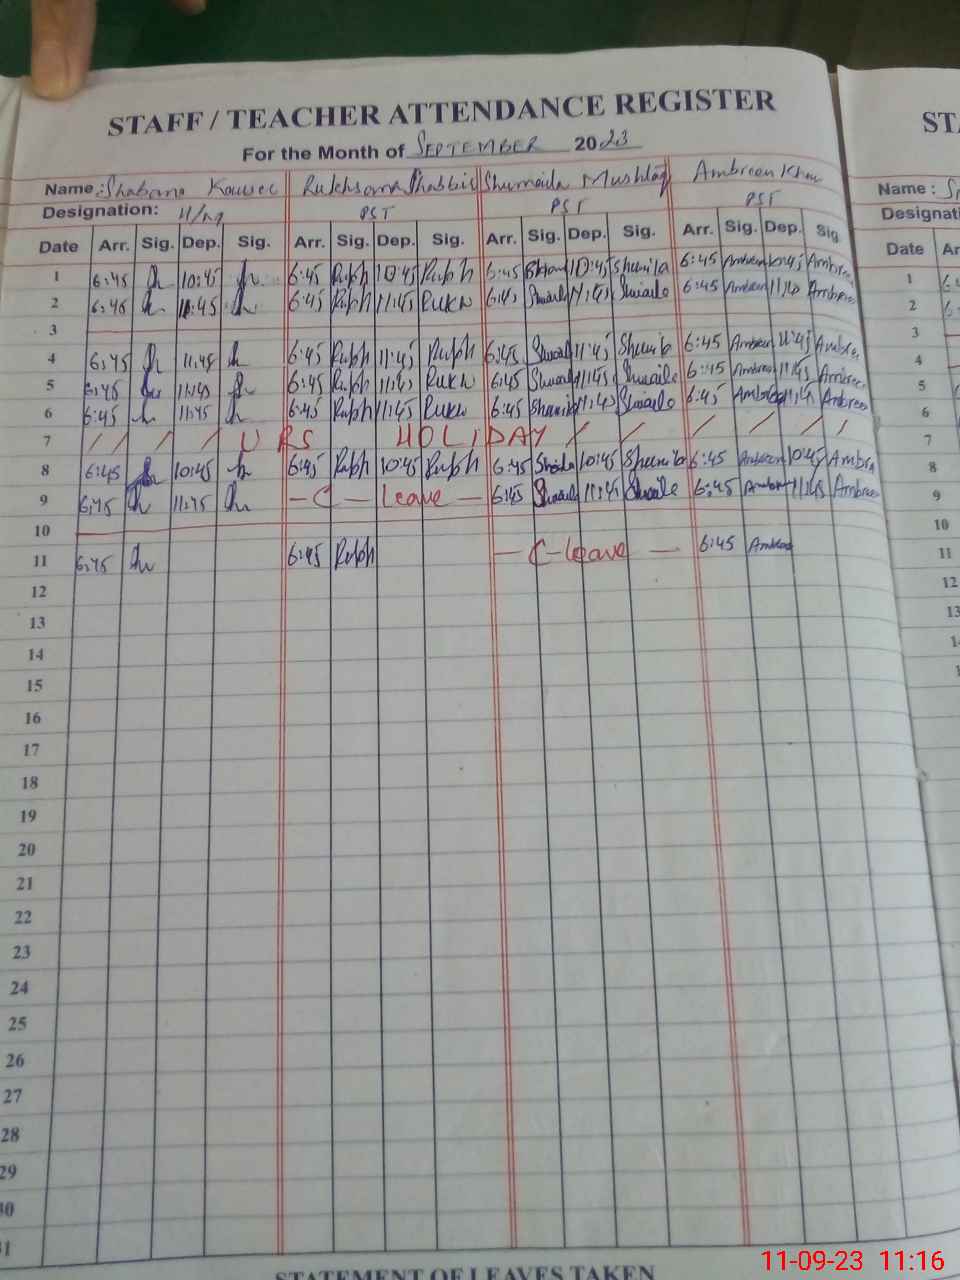 STAFF / TEACHER ATTENDANCE REGISTER
For the Month of SEPTEMBER 2023
Name: Shabana Kausar Rukhsana Shabbir Shumaila Mushtaq Ambreen Khan
Designation: H/M PST PST PST
Date Arr. Sig. Dep. Sig. Arr. Sig. Dep. Sig. Arr. Sig. Dep. Sig. Arr. Sig. Dep. Sig.
1 6:45 10:45 6:45 Rukh 10:45 Rukh 6:45 10:45 Shumila 6:45 Ambreen 10:45 Ambreen
2 6:45 11:45 6:45 Rukh 11:45 Rukh 6:45 11:45 6:45 Ambreen 11:45 Ambreen
3
4 6:45 11:45 6:45 Rukh 11:45 Rukh 6:45 11:45 6:45 Ambreen 11:45 Ambreen
5 6:45 11:45 6:45 Rukh 11:45 Rukh 6:45 11:45 6:45 Ambreen 11:45 Ambreen
6 6:45 11:45 6:45 Rukh 11:45 Rukh 6:45 11:45 6:45 11:45 Ambreen
7 / / / / URS HOLIDAY / / / / / /
8 6:45 10:45 6:45 Rukh 10:45 Rukh 6:45 10:45 6:45 Ambreen 10:45 Ambreen
9 6:45 11:45 — C — Leave — 6:45 11:45 6:45 Ambreen 11:45 Ambreen
10
11 6:45 6:45 Rukh — C-leave — 6:45 Ambreen
12
13
14
15
16
17
18
19
20
21
22
23
24
25
26
27
28
29
30
31
STATEMENT OF LEAVES TAKEN
ST
Name :
Designati
Date
1
2
3
4
5
6
7
8
9
10
11
12
11-09-23 11:16